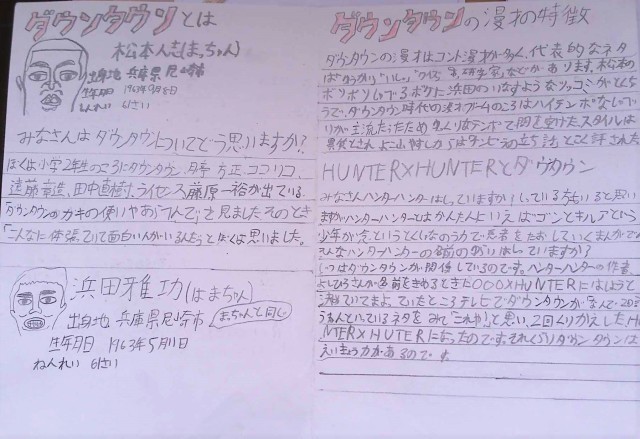 ダウンタウンとは
松本人志(まっちゃん)
出身地 兵庫県尼崎市
生年月日 1963年9月8日
ねんれい 61さい
みなさんはダウンタウンについてどう思いますか?
ぼくは小学2年生のころにダウンタウン、月亭 方正、ココリコ、
遠藤章造、田中直樹、ライセンス藤原一裕が出ている
「ダウンタウンのガキの使いやあらへんで」を見ました。そのとき
「こんなに体張っていて面白い人がいるんだなっ」とぼくは思いました。
浜田雅功(はまちゃん)
出身地 兵庫県尼崎市 (まっちゃんと同じ)
生年月日 1963年5月11日
ねんれい 61さい
ダウンタウンの漫才の特徴
ダウンタウンの漫才はコント漫才が多く、代表的なネタ
などがあります。松本の
ボソリボソリとボケに浜田の ツッコミがとくちょ
うで、ダウンタウン時代の漫才ブームのころはハイテンポなしゃべ
りが主流だったため
異質とされ、 「チンピラの立ち話」とこく評された
HUNTER×HUNTERとダウンタウン
みなさんハンターハンターはしっていますか?しっている方もいると思い
ますが、ハンターハンターとはかんたんにいえばゴンとキルアという
少年が念というとくしゅなのう力で悪者をたおしていくまんがで
そんなハンターハンターの名前の はしっていますか?
じつはダウンタウンが関係しているのです。ハンターハンターの作者、
よしひろさんが名前をきめるときに〇〇〇×HUNTERにはしようと
決めていてまよっていたところテレビでダウンタウンが「なんで2回
うねん」といっているネタをみて「これや!」と思い、2回くりかえしたHU
NTER×HUTERになったのです。それくらいダウンタウンは
えいきょう力があるのです